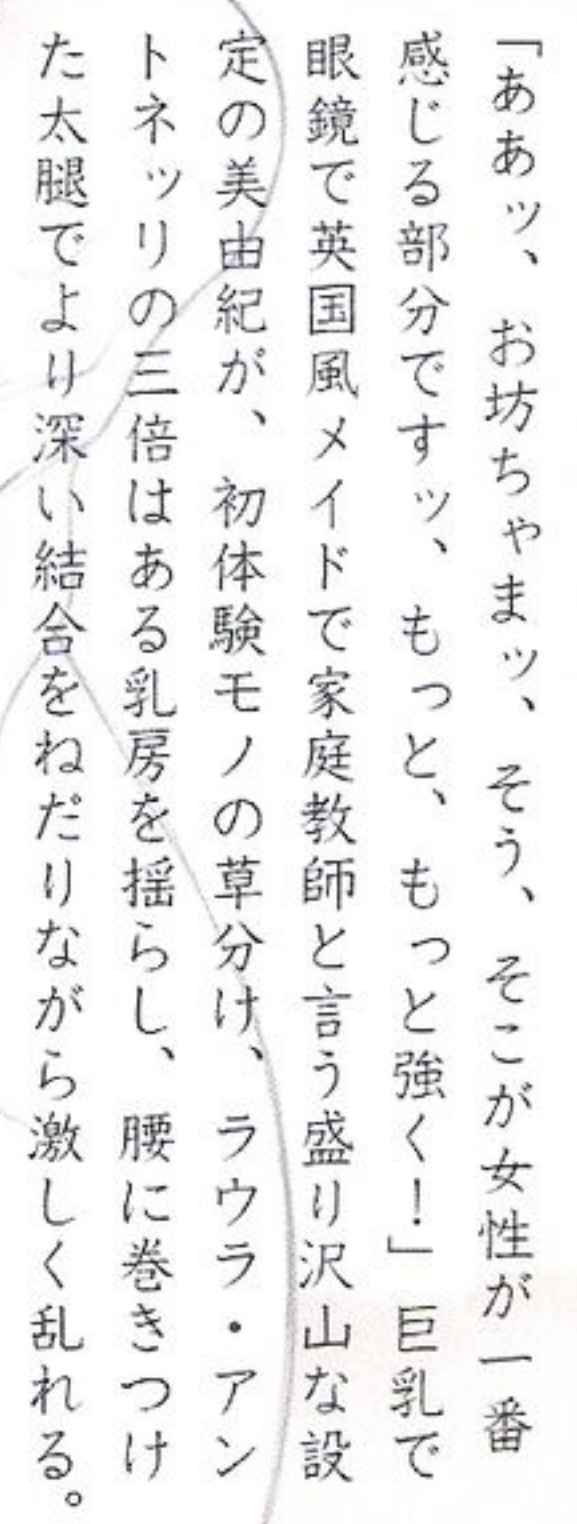 「ああッ、お坊ちゃまッ、そう、そこが女性が一番
感じる部分ですッ、もっと、もっと強く！」巨乳で
眼鏡で英国風メイドで家庭教師と言う盛り沢山な設
定の美由紀が、初体験モノの草分け、ラウラ・アン
トネッリの三倍はある乳房を揺らし、腰に巻きつけ
た太腿でより深い結合をねだりながら激しく乱れる。